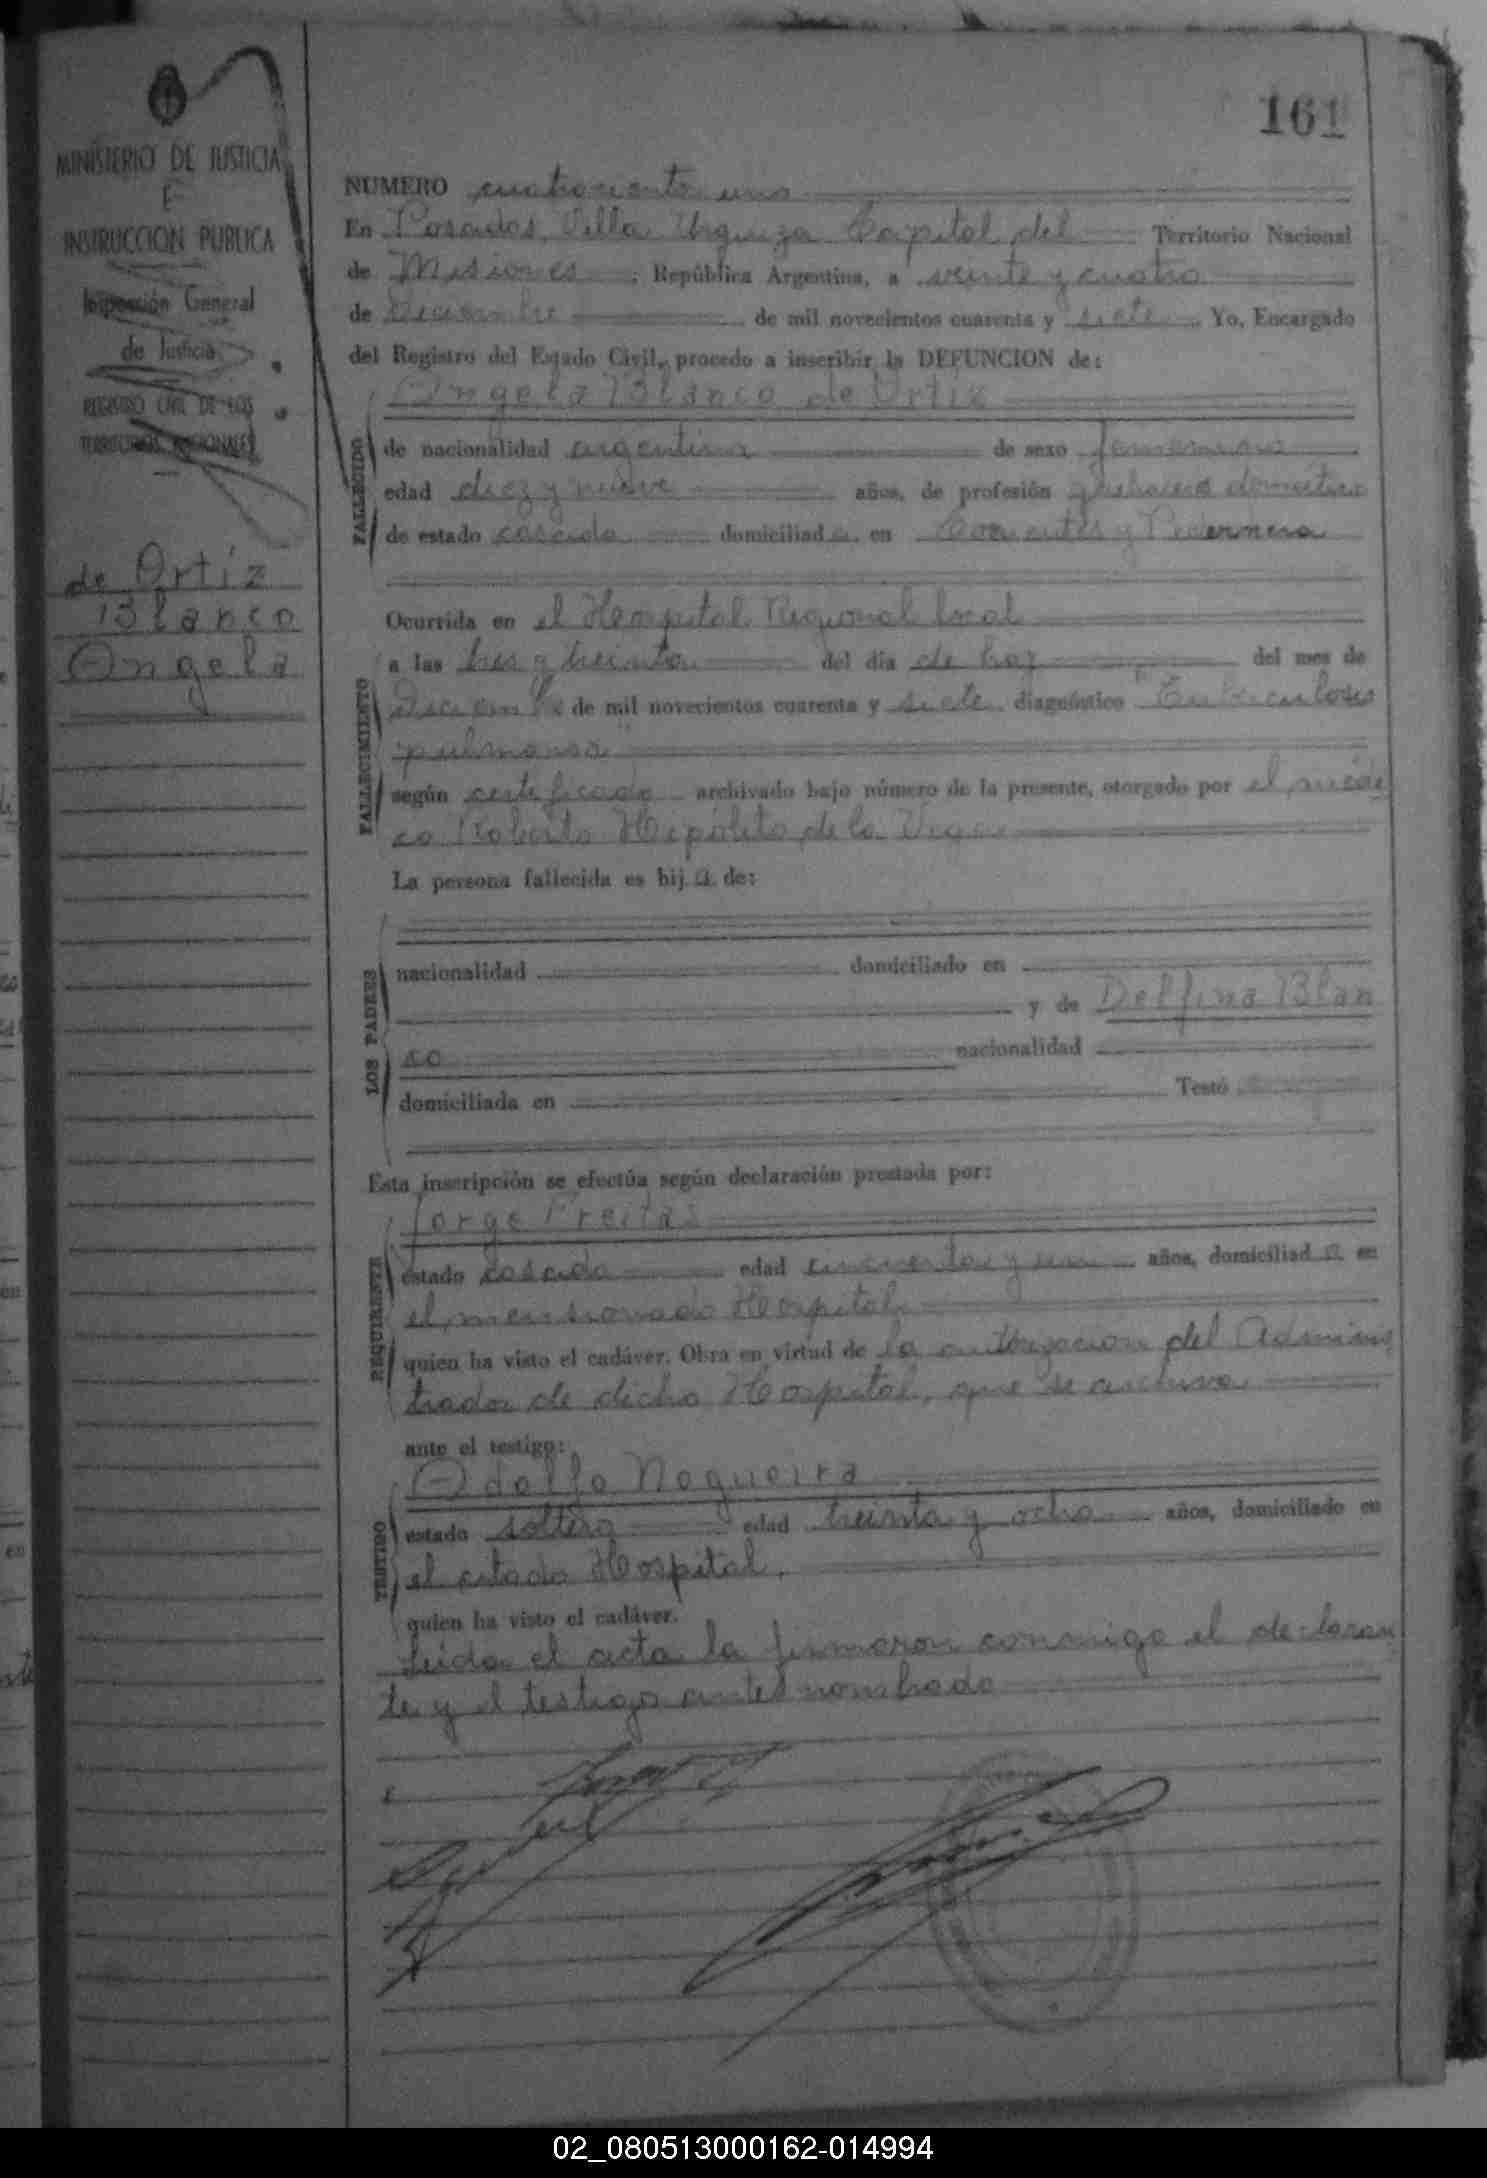 161
MINISTERIO DE JUSTICIA
E
INSTRUCCION PUBLICA
Inspección General
de Justicia
REGISTRO CIVIL DE LOS
TERRITORIOS NACIONALES
de Ortíz
Blanco
Angela
NUMERO cuatrociento uno
En Posadas, Villa Urquiza Capital del Territorio Nacional
de Misiones ; República Argentina, a veinte y cuatro
de Diciembre de mil novecientos cuarenta y siete. Yo, Encargado
del Registro del Estado Civil, procedo a inscribir la DEFUNCION de:
Angela Blanco de Ortíz
FALLECIDO
de nacionalidad argentina de sexo femenino
edad diez y nueve años, de profesión quehacers domestico
de estado casada domiciliada en Corrientes y Pedernera
FALLECIMIENTO
Ocurrida en el Hospital Regional local
a las tres y treinta del día de hoy del mes de
Diciembre de mil novecientos cuarenta y siete diagnóstico "Tuberculosis
pulmonar"
según certificado archivado bajo número de la presente, otorgado por el médi
co Roberto Hipólito de la Vega
La persona fallecida es hija de:
LOS PADRES
nacionalidad domiciliado en
y de Delfina Blan
co nacionalidad
domiciliada en Testó
Esta inscripción se efectúa según declaración prestada por:
REQUIRENTE
Jorge Freitas
estado casado edad cincuenta y un años, domiciliado en
el mensionado Hospital
quien ha visto el cadáver. Obra en virtud de la autorizacion del Adminis
trador de dicho Hospital, que se archiva
ante el testigo:
TESTIGO
Adolfo Nogueira
estado soltero edad treinta y ocho años, domiciliado en
el citado Hospital.
quien ha visto el cadáver.
Leida el acta la firmaron conmigo el declaran
te y el testigo antes nombrado
02_080513000162-014994